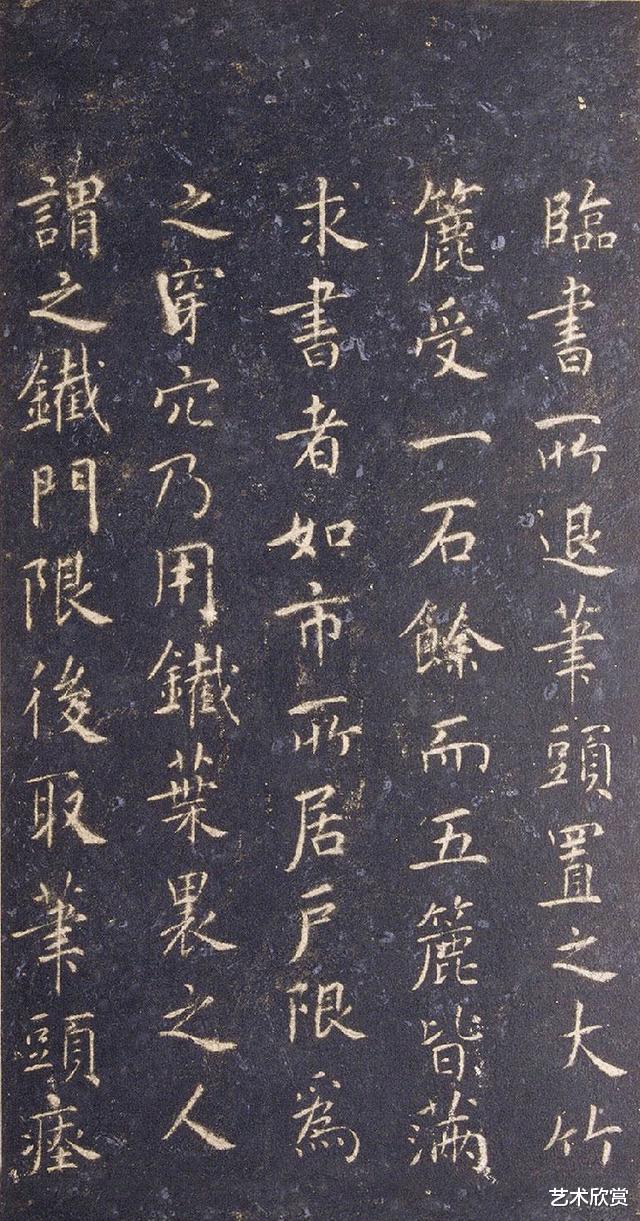 臨書所退筆頭置之大竹
簏受一石餘而五簏皆滿
求書者如市所居戶限為
之穿穴乃用鐵葉裹之人
謂之鐵門限後取筆頭瘞
艺术欣赏